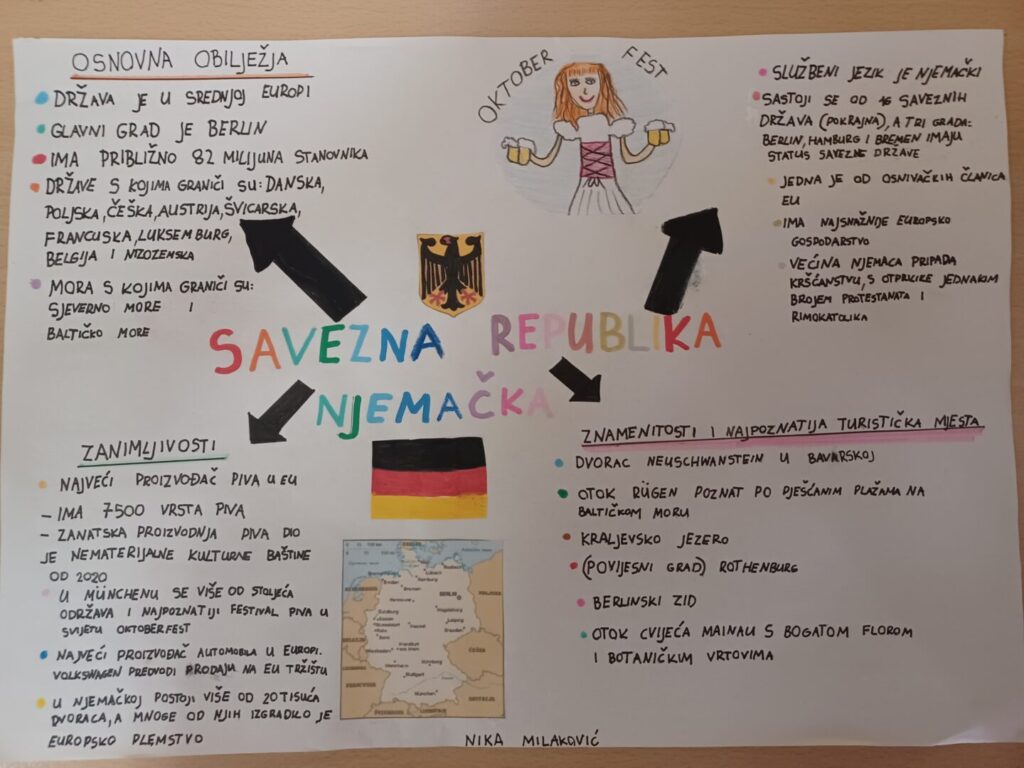 OSNOVNA OBILJEŽJA
DRŽAVA JE U SREDNJOJ EUROPI
GLAVNI GRAD JE BERLIN
IMA PRIBLIŽNO 82 MILIJUNA STANOVNIKA
DRŽAVE S KOJIMA GRANIČI SU: DANSKA,
POLJSKA, ČEŠKA, AUSTRIJA, ŠVICARSKA,
FRANCUSKA, LUKSEMBURG,
BELGIJA I NIZOZEMSKA
MORA S KOJIMA GRANIČI SU:
SJEVERNO MORE I
BALTIČKO MORE
OKTOBER FEST
SLUŽBENI JEZIK JE NJEMAČKI
SASTOJI SE OD 16 SAVEZNIH
DRŽAVA (POKRAJNA), A TRI GRADA:
BERLIN, HAMBURG I BREMEN IMAJU
STATUS SAVEZNE DRŽAVE
JEDNA JE OD OSNIVAČKIH ČLANICA
EU
IMA NAJSNAŽNIJE EUROPSKO
GOSPODARSTVO
VEĆINA NJEMACA PRIPADA
KRŠĆANSTVU, S OTPRILIKE JEDNAKIM
BROJEM PROTESTANATA I
RIMOKATOLIKA
SAVEZNA REPUBLIKA
NJEMAČKA
ZANIMLJIVOSTI
NAJVEĆI PROIZVOĐAČ PIVA U EU
- IMA 7500 VRSTA PIVA
- ZANATSKA PROIZVODNJA PIVA DIO
JE NEMATERIJALNE KULTURNE BAŠTINE
OD 2020
U MÜNCHENU SE VIŠE OD STOLJEĆA
ODRŽAVA I NAJPOZNATIJI FESTIVAL PIVA U
SVIJETU OKTOBERFEST
NAJVEĆI PROIZVOĐAČ AUTOMOBILA U EUROPI.
VOLKSWAGEN PREDVODI PRODAJU NA EU TRŽIŠTU
U NJEMAČKOJ POSTOJI VIŠE OD 20 TISUĆA
DVORACA, A MNOGE OD NJIH IZGRADILO JE
EUROPSKO PLEMSTVO
ZNAMENITOSTI I NAJPOZNATIJA TURISTIČKA MJESTA
DVORAC NEUSCHWANSTEIN U BAVARSKOJ
OTOK RÜGEN POZNAT PO PJEŠČANIM PLAŽAMA NA
BALTIČKOM MORU
KRALJEVSKO JEZERO
(POVIJESNI GRAD) ROTHENBURG
BERLINSKI ZID
OTOK CVIJEĆA MAINAU S BOGATOM FLOROM
I BOTANIČKIM VRTOVIMA
Hamburg
Bremen
BERLIN
Magdeburg
Leipzig
Nürnberg
Stuttgart
München
NIKA MILAKOVIĆ